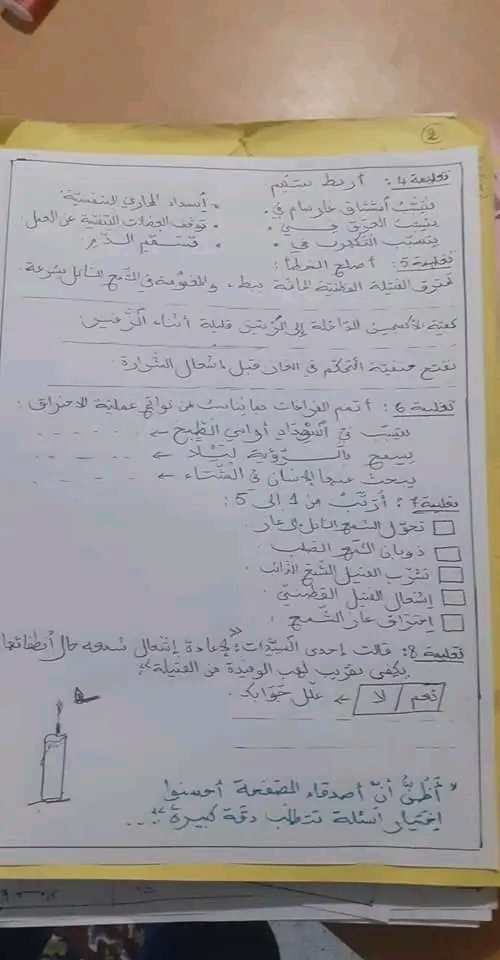 2
تعليمة 4: أربط بسهم
يتسبّب استنشاق غاز سام في • • انسداد المجاري التنفسيّة
يتسبّب الغرق في • • توقف العضلات التنفسية عن العمل
يتسبّب التكهرب في • • تسمّم الدّم
تعليمة 5: أصلح الخطأ:
تحترق الفتيلة القطنية الجافّة ببطء، والمغموسة في الشمع السّائل بسرعة.
كميّة الأكسجين الدّاخلة إلى الرّئتين قليلة أثناء الزّفير.
نفتح حنفيّة التّحكّم في الغاز قبل إشعال الشّرارة.
تعليمة 6: أتمم الفراغات بما يناسب من نواتج عمليّة الاحتراق:
يتسبّب في اسوداد أواني الطّبخ ←
يسمح بالرّؤية ليلا ←
يبحث عنها الإنسان في الشّتاء ←
تعليمة 7: أرتّب من 1 إلى 5:
تحوّل الشمع السّائل إلى غاز.
ذوبان الشمع الصّلب
تشرّب الفتيل الشمع الذّائب
إشعال الفتيل القطنيّ
احتراق غاز الشّمع.
تعليمة 8: قالت إحدى السيّدات: «لإعادة إشعال شمعة حال انطفائها
يكفي تقريب لهب الوقيدة من الفتيلة».
نعم / لا ← علّل جوابك.
"أظنّ أنّ أصدقاء الصّفحة أحسنوا
اختيار أسئلة تتطلّب دقّة كبيرة"...